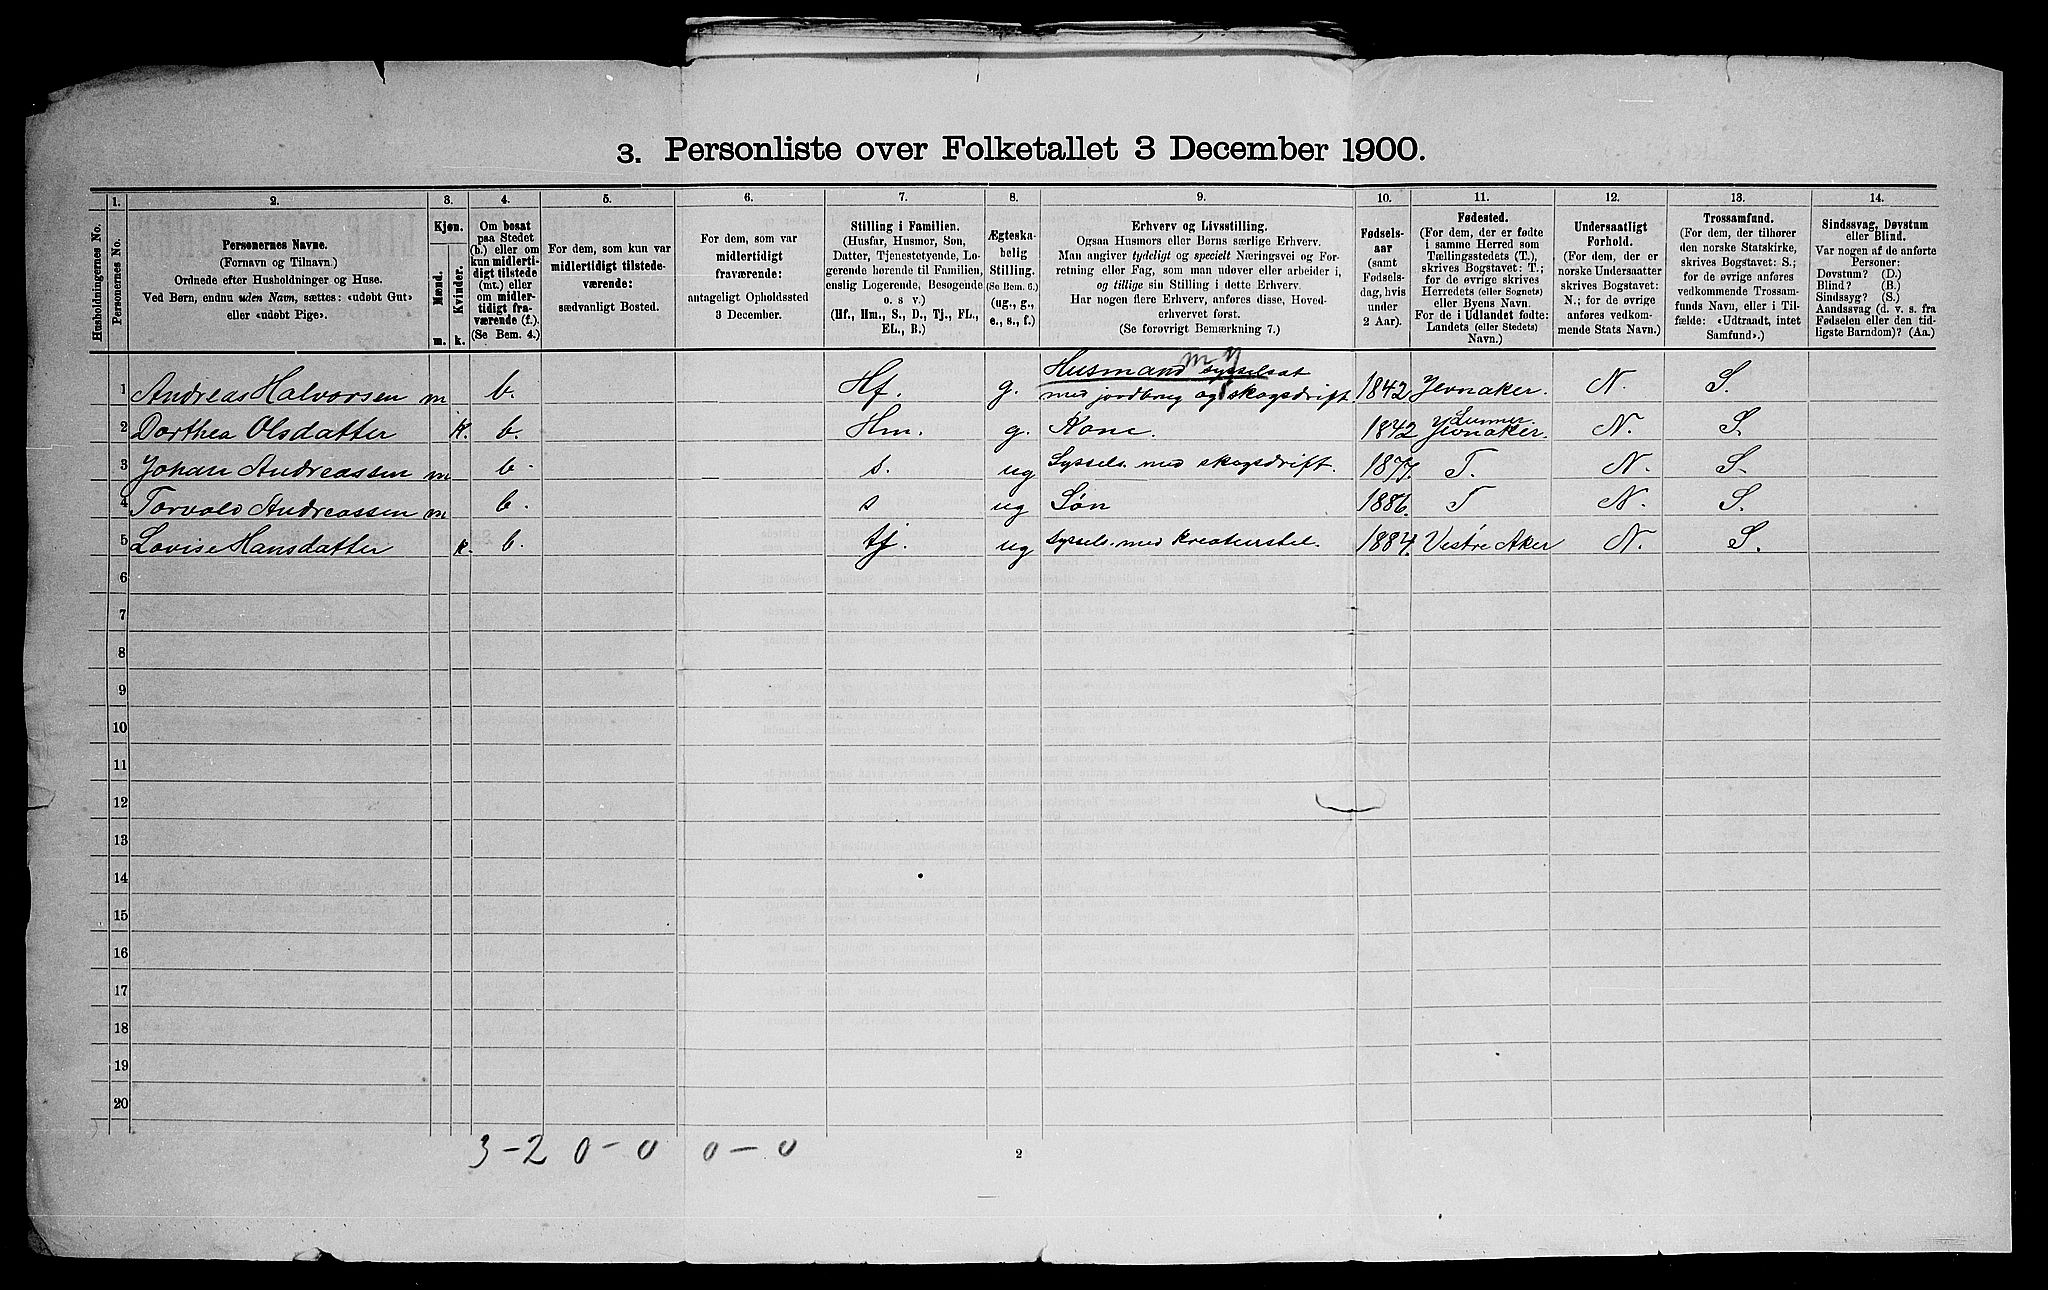 3. Personliste over Folketallet 3 December 1900.
1. 2. 3. 4. 5. 6. 7. 8. 9. 10. 11. 12. 13. 14.
Husholdningernes No.
Personernes No.
Personernes Navne.
(Fornavn og Tilnavn.)
Ordnede efter Husholdninger og Huse.
Ved Børn, endnu uden Navn, sættes: «udøbt Gut»
eller «udøbt Pige».
Kjøn.
Mænd.
Kvinder.
m. k.
Om bosat
paa Stedet
(b.) eller om
kun midlerti-
digt tilstede
(mt.) eller
om midler-
tidigt fra-
værende (f.).
(Se Bem. 4.)
For dem, som kun var
midlertidigt tilstede-
værende:
sædvanligt Bosted.
For dem, som var
midlertidigt
fraværende:
antageligt Opholdssted
3 December.
Stilling i Familien.
(Husfar, Husmor, Søn,
Datter, Tjenestetyende, Lo-
gerende hørende til Familien,
enslig Logerende, Besøgende
o. s. v.)
(Hf., Hm., S., D., Tj., FL.,
EL., B.)
Ægteska-
belig
Stilling.
(Se Bem. 6.)
(ug., g.,
e., s., f.)
Erhverv og Livsstilling.
Ogsaa Husmors eller Børns særlige Erhverv.
Man angiver tydeligt og specielt Næringsvei og For-
retning eller Fag, som man udøver eller arbeider i,
og tillige sin Stilling i dette Erhverv.
Har nogen flere Erhverv, anføres disse, Hoved-
erhvervet først.
(Se forøvrigt Bemærkning 7.)
Fødsels-
aar
(samt
Fødsels-
dag, hvis
under
2 Aar).
Fødested.
(For dem, der er fødte
i samme Herred som
Tællingsstedets (T.),
skrives Bogstavet: T.;
for de øvrige skrives
Herredets (eller Sognets)
eller Byens Navn.
For de i Udlandet fødte:
Landets (eller Stedets)
Navn.)
Undersaatligt
Forhold.
(For dem, der er
norske Undersaatter
skrives Bogstavet:
N.; for de øvrige
anføres vedkom-
mende Stats Navn.)
Trossamfund.
(For dem, der tilhører
den norske Statskirke,
skrives Bogstavet: S.;
for de øvrige anføres
vedkommende Trossam-
funds Navn, eller i Til-
fælde: «Udtraadt, intet
Samfund».)
Sindssvag, Døvstum
eller Blind.
Var nogen af de anførte
Personer:
Døvstum? (D.)
Blind? (B.)
Sindssyg? (S.)
Aandssvag (d. v. s. fra
Fødselen eller den tid-
ligste Barndom)? (Aa.)
Husmand m J sysselsat
1 Andreas Halvorsen m b. Hf. g. med jordbrug og skogsdrift. 1842 Jevnaker. N. S.
Lunner.
2 Dorthea Olsdatter k. b. Hm. g. Kone. 1842 Jevnaker. N. S.
3 Johan Andreassen m b. s. ug Syssels. med skogsdrift. 1877. T. N. S.
4 Torvald Andreassen m b. s ug Søn 1886. T N. S.
5 Lovise Hansdatter k. b. tj. ug Syssels. med kreaturstel. 1884. Vestre Aker N. S.
6
7
8
9
10
11
12
13
14
15
16
17
18
19
20
3-2 0-0 0-0
2